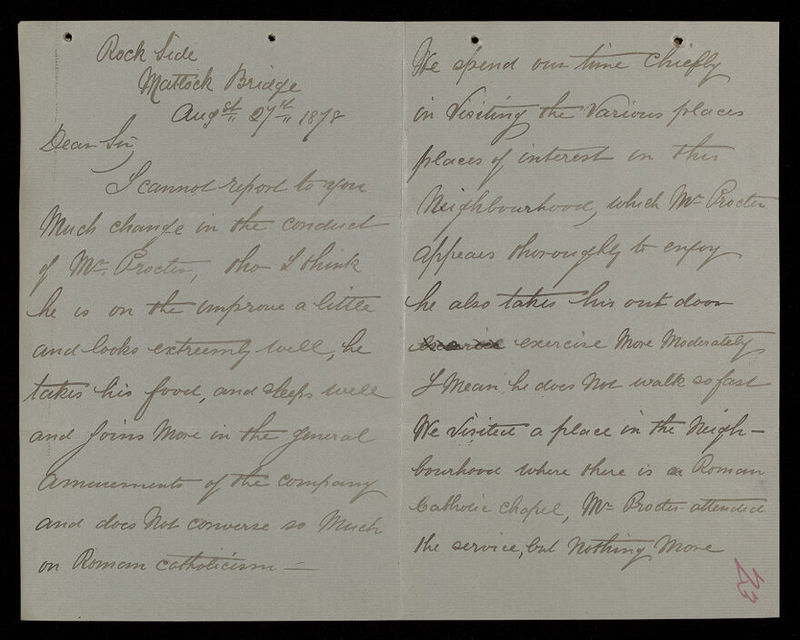 Rock Side
Matlock Bridge
Augst 27th 1878
Dear Sir
I cannot report to you
Much change in the conduct
of Mr. Procter, tho I think
he is on the improve a little
and looks extreemly well, he
takes his food, and sleeps well
and Joins More in the general
Amusements of the company
and does Not converse so Much
on Roman catholicism —
We spend our time Chiefly
in Visiting the Various places
places of interest in this
Neighbourhood, which Mr Procter
appears thoroughly to enjoy
he also takes his out door
exercise More Moderately
I Mean he does Not walk so fast
We Visited a place in the Neigh-
bourhood where there is a Roman
Catholic Chapel, Mr Procter attended
the service, but Nothing More
23